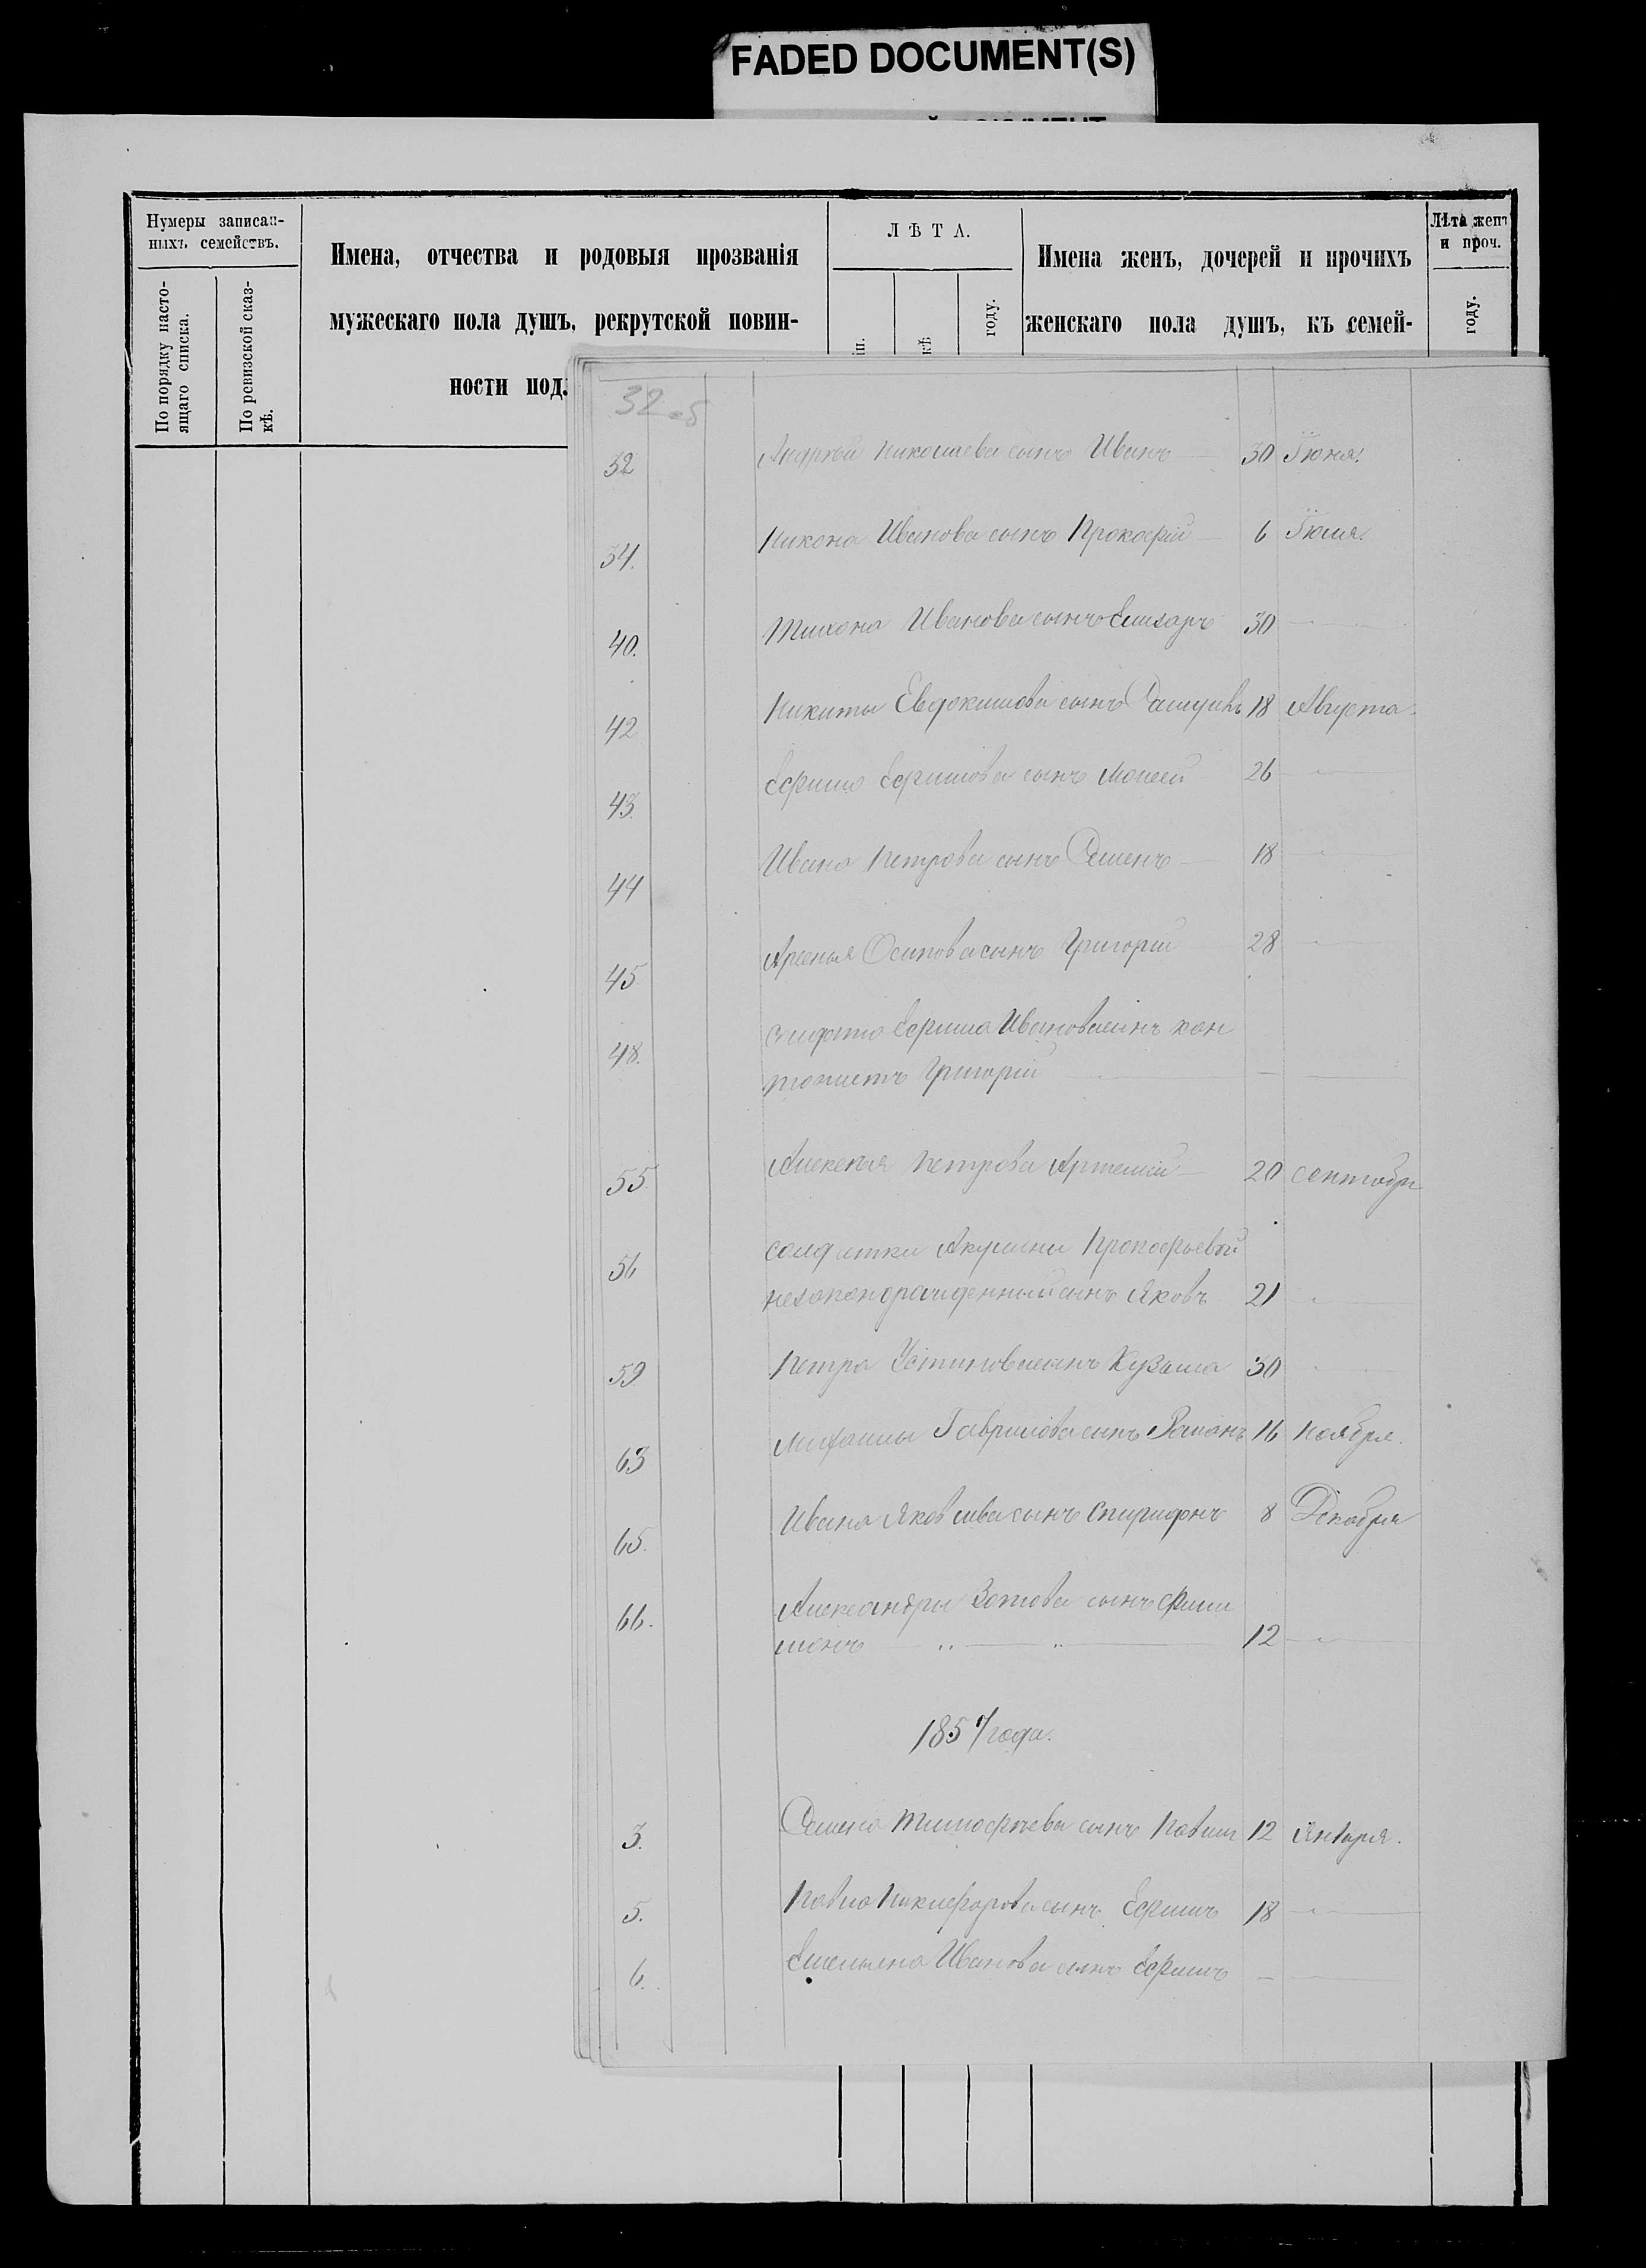 FADED DOCUMENT(S)
Нумеры записан-
ныхъ семействъ.
По порядку насто-
ящаго списка.
По ревизской сказ-
кѣ.
Имена, отчества и родовыя прозванія
мужескаго пола душъ, рекрутской повин-
ности под
ЛѢТА.
іи.
кѣ
году.
Имена женъ, дочерей и прочихъ
женскаго пола душъ, къ семей-
Лѣта женъ
и проч.
году.
32 об
32 Андрея Николаева сынъ Иванъ 30 Іюня.
34. Никона Иванова сынъ Прокофій 6 Іюля.
40. Тихона Иванова сынъ Елизаръ 30 "
42 Никиты Евдокимова сынъ 18 Августа
43. Ефима Ефимова сынъ Моисей 26 "
44 Ивана Петрова сынъ Семенъ 18 "
45 Арсенья Осипова сынъ Григорій 28 "
48. Солдата Ефима Иванова сынъ кан
тонистъ Григорій
55 Алексея Петрова Артемій 20 Сентября
56 солдатки Акулины Прокофьевой
незаконорожденный сынъ Яковъ 21 "
59 Петра Устинова сынъ Кузьма 30 "
63 Михаилы Гаврилова сынъ Романъ 16 Ноября.
65. Ивана Яковлева сынъ Спиридонъ 8 Декабря
66. Александры Зотова сынъ Фили
монъ " " 12 "
1857 года.
3. Семена Тимофѣева сынъ Павелъ 12 Января.
5. Павла Никифорова сынъ Ефимъ 18 "
6. Емельяна Иванова сынъ Ефимъ